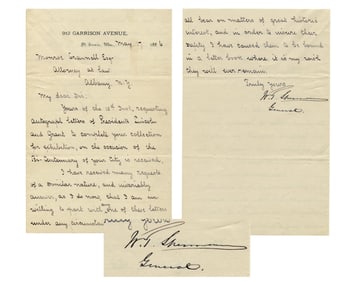 912 GARRISON AVENUE,
St. Louis, Mo., May 1886
Monroe Crannell Esq.
Attorney at Law
Albany N.Y.
My dear Sir.
Yours of the 15th Inst, requesting
autograph letters of Presidents Lincoln
and Grant to complete your collection
for exhibition, on the occasion of the
Bi-Centennary of your City is received.
I have received many requests
of a similar nature, and invariably
answer, as I do now, that I am un
willing to part with one of these letters
under any circumstances
all bear on matters of great historic
interest, and in order to insure their
safety I have caused them to be bound
in a letter book where it is my wish
they will ever remain.
Truly Yours
W.T. Sherman
General.
Truly Yours
W.T. Sherman
General.